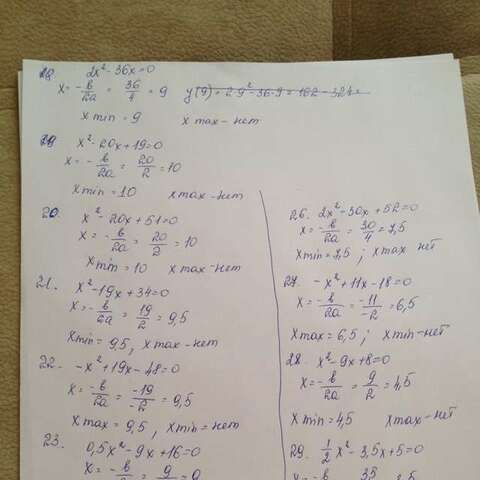 18. 2x² - 36x = 0
x = -b/2a = 36/4 = 9 y(9) = 2·9² - 36·9 = 162 - 324 =
x min = 9 x max - нет
19 x² - 20x + 19 = 0
x = -b/2a = 20/2 = 10
x min = 10 x max - нет
20. x² - 20x + 51 = 0
x = -b/2a = 20/2 = 10
x min = 10 x max - нет
21. x² - 19x + 34 = 0
x = -b/2a = 19/2 = 9,5
x min = 9,5, x max - нет
22. -x² + 19x - 48 = 0
x = -b/2a = -19/-2 = 9,5
x max = 9,5, x min = нет
23. 0,5x² - 9x + 16 = 0
x = -b/ = 9/ = 9
26. 2x² - 30x + 52 = 0
x = -b/2a = 30/4 = 7,5
x min = 7,5 ; x max нет
27. -x² + 11x - 18 = 0
x = -b/2a = -11/-2 = 6,5
x max = 6,5 ; x min - нет
28. x² - 9x + 8 = 0
x = -b/2a = 9/2 = 4,5
x min = 4,5 x max - нет
29. 1/2 x² - 3,5x + 5 = 0